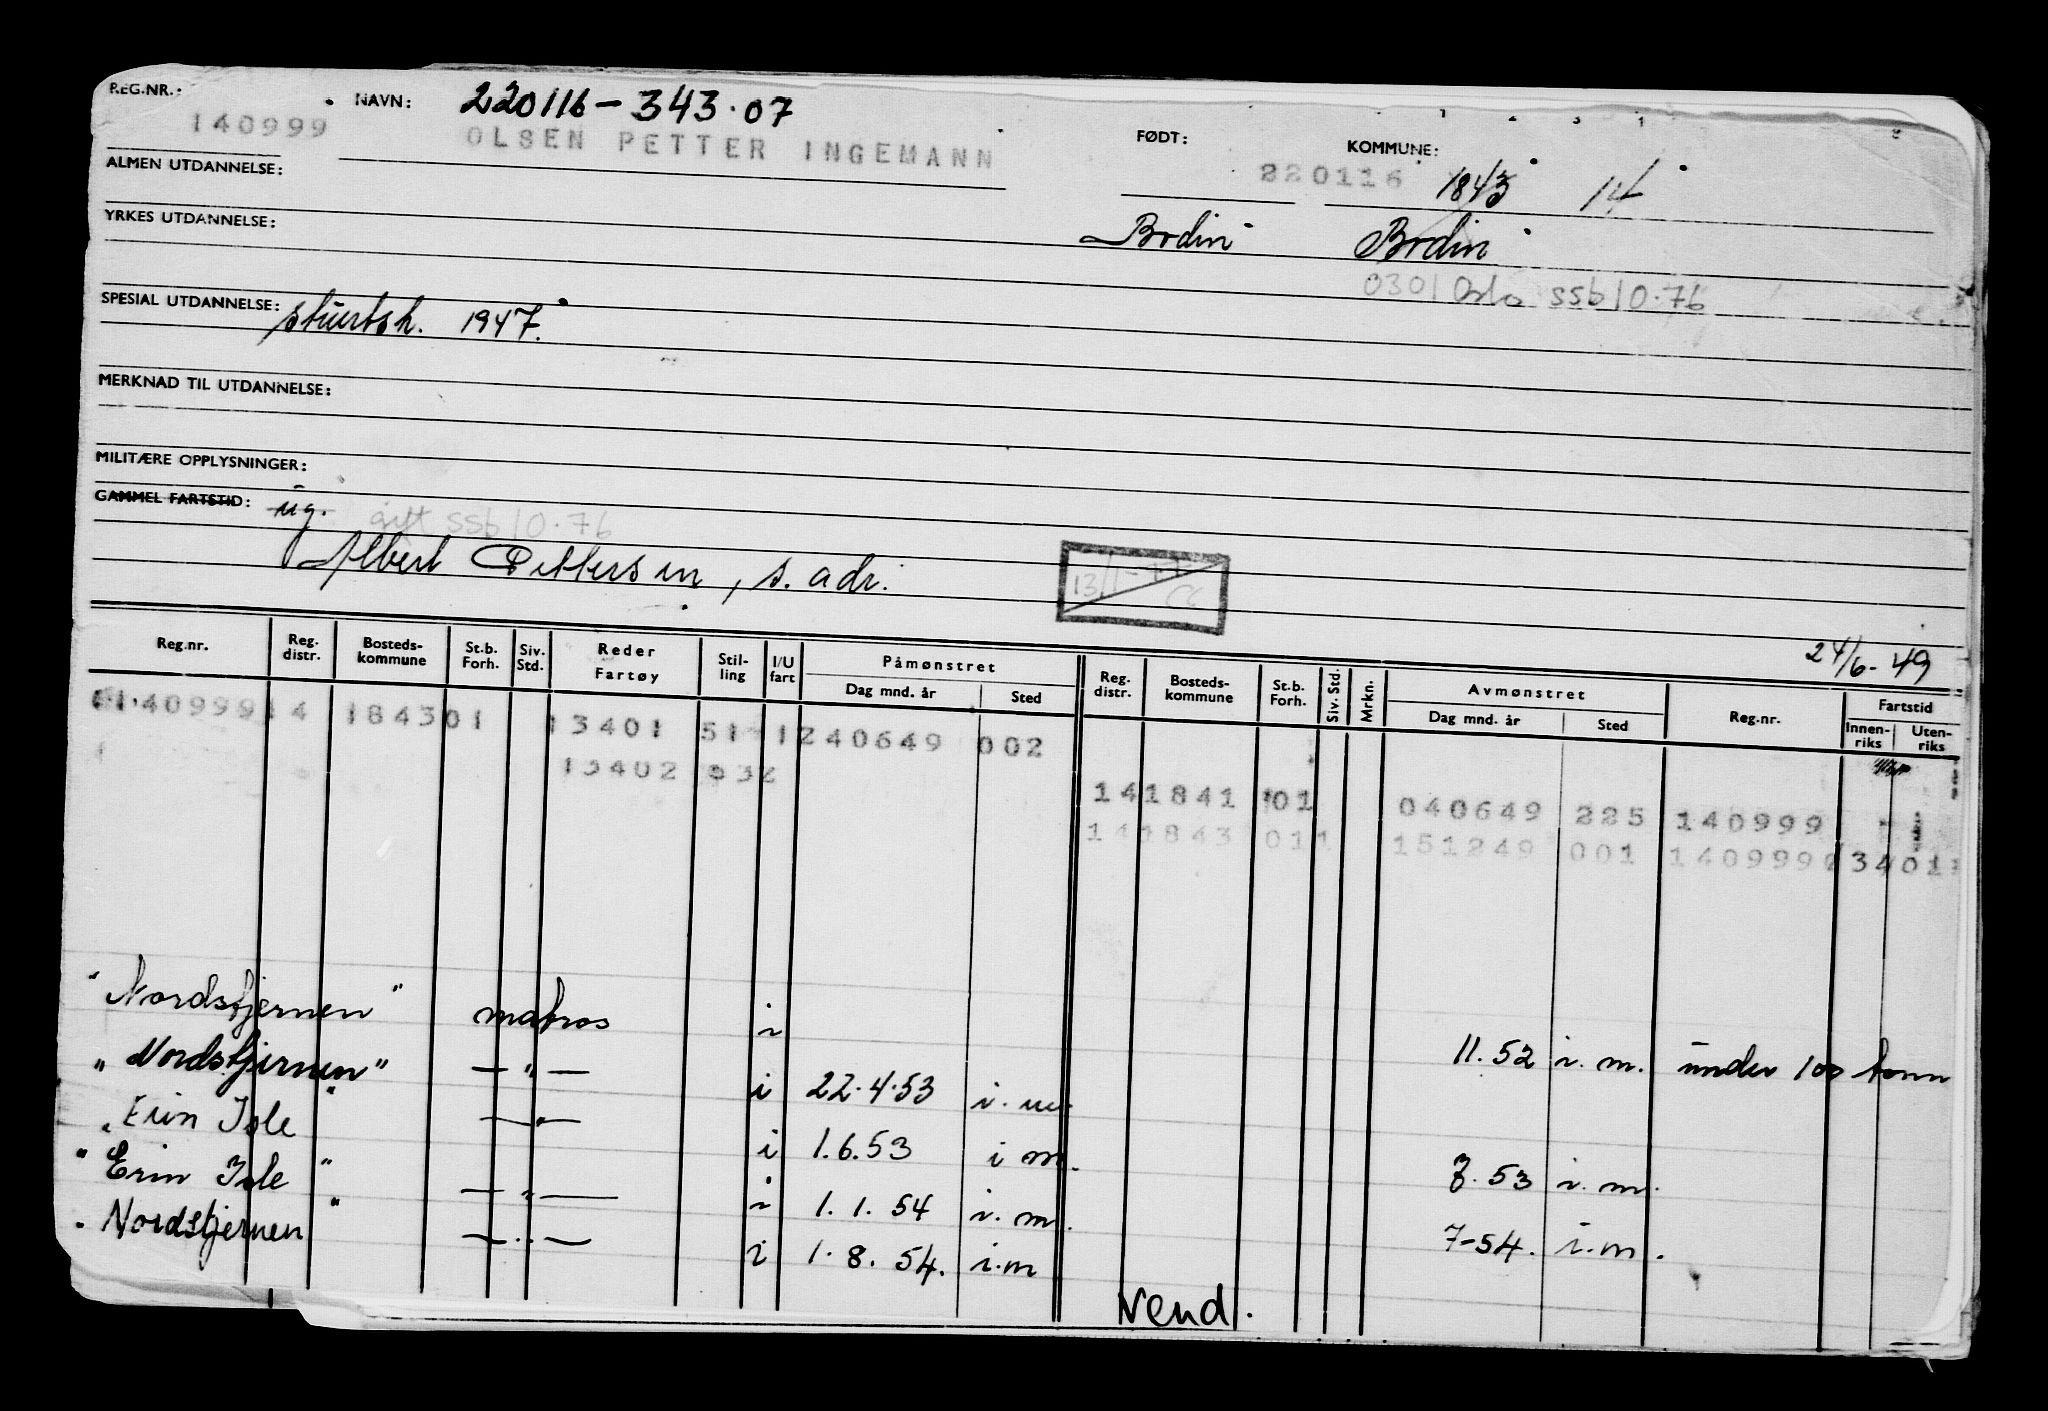 REG.NR.: NAVN: 220116-343.07
140999 OLSEN PETTER INGEMANN FØDT: KOMMUNE:
220116 1843 14
ALMEN UTDANNELSE:
YRKES UTDANNELSE: Bodin Bodin
0301 Oslo ssb 10.76
SPESIAL UTDANNELSE: stuertsk. 1947.
MERKNAD TIL UTDANNELSE:
MILITÆRE OPPLYSNINGER:
GAMMEL FARTSTID: ug. gift ssb 10.76
Albert Pettersen, s. adr.
13/1-77
24/6-49
Reg.nr. Reg. distr. Bosteds-kommune St.b. Forh. Siv. Std. Reder Fartøy Stil-ling I/U fart Påmønstret Dag mnd. år Sted Reg. distr. Bosteds-kommune St.b. Forh. Siv. Std. Mrkn. Avmønstret Dag mnd. år Sted Reg.nr. Fartstid Innen-riks Uten-riks
140999 14 1843 01 13401 51 1 240649 002
13402 032
14 1841 01 040649 225 140999
14 1843 011 151249 001 140999 3401
"Nordstjernen" matros i 11.52 i.m. under 100 tonn
"Nordstjernen" —"— i 22.4.53 i.m.
"Erin Isle" —"— i 1.6.53 i m. 7.53 i.m.
"Erin Isle" —"— i 1.1.54 i.m. 7-54. i.m.
"Nordstjernen" —"— i 1.8.54. i.m
Vend.